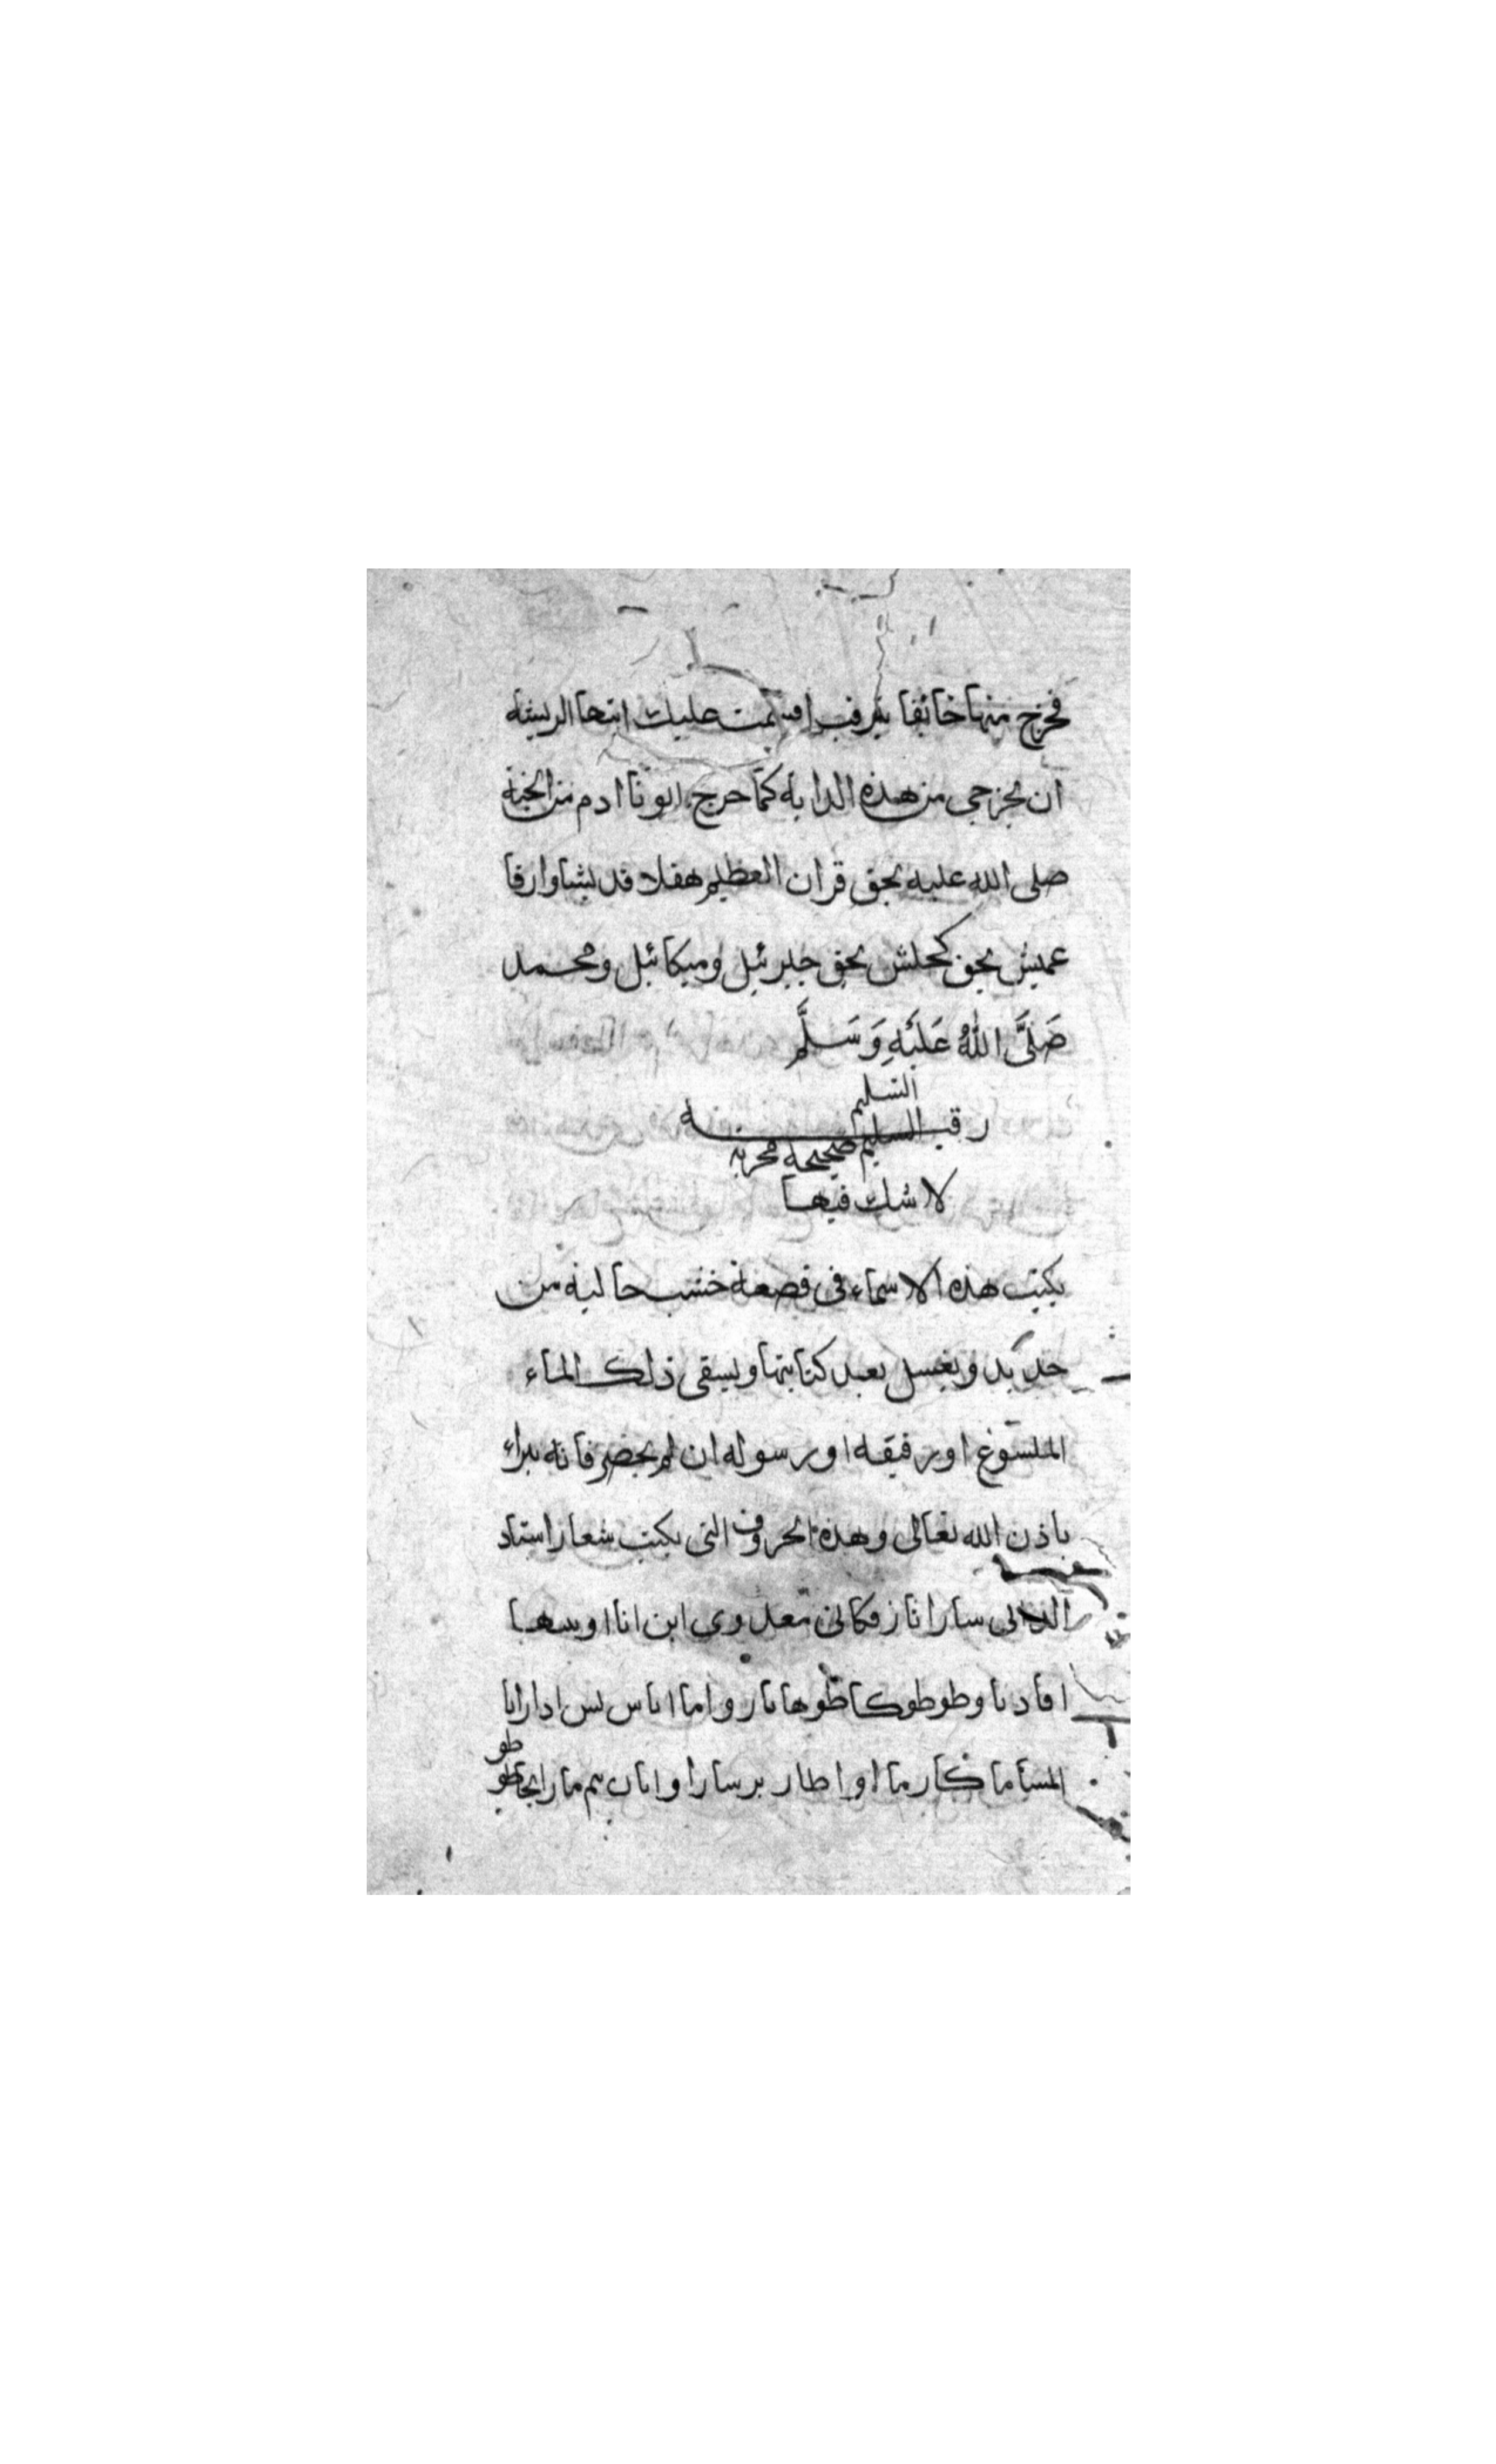 فخرج منها خائفا يترقب اقسمت عليك ايتها الريشه
ان تخرجي من هذه الدابه كما خرج ابونا ادم من الجنة
صلى الله عليه بحق قران العظيم هقلا قد يشاوارقا
عميش بحق كحلش بحق جبرئيل وميكائيل ومحمد
صَلَىَّ اللهُ عَلَيْهِ وَسَلَّم
السليم
رقيـــة السليم صحيحة مجربة
لا شك فيها
يكتب هذه الاسماء في قصعة خشب خالية من
حديد ويغسل بعد كتابتها ويسقى ذلك الماء
الملسوع او رفيقه او رسوله ان لم يحضر فانه يبراء
باذن الله تعالى وهذه الحروف التي يكتب شعارا
سارا انا اوسها
افادنا وطوطوكاطوها نارو اما اناس
ماكارما اواطار برسارا
طو